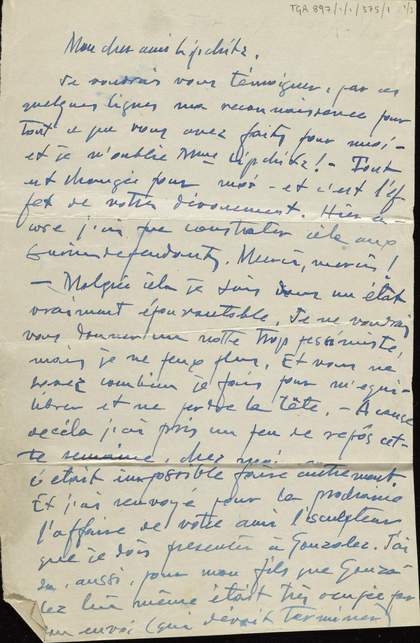 TGA 897/1/1/375/1 1/2
Mon cher ami Lipchitz.
Je voudrais vous témoigner, par ces
quelques lignes ma reconnaissance pour
tout ce que vous avez faits pour moi -
et je n'oublie Mme Lipchitz! - Tout
est changée pour moi - et c'est l'ef-
fet de votre dévouement. Hier en-
core j'ai pu constater cela aux
Surindépendants. Merci, merci!
- Malgré cela je suis dans un état
vraiment épouvantable. Je ne voudrais
vous donner une notte trop pessimiste,
mais je ne peux plus. Et vous ne
savez combien je fais pour m'equi-
librer et ne perdre la tête. - A cause
de céla j'ai pris un peu de repôs cet-
te semaine, chez moi.
il était impossible faire autrement.
Et j'ai renvoyé pour la prochaine
l'affaire de votre ami l'sculpteur
que je dois presenter à Gonzalez. J'ai
su, aussi, pour mon fils que Gonzá-
lez lui même était très occupé par
un envoi (qui dévait terminer